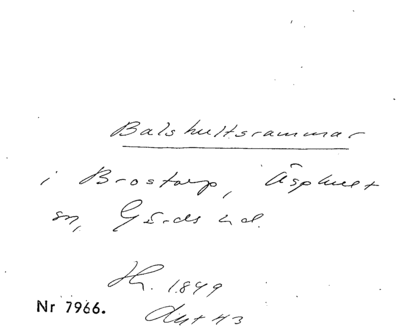 Balshultsrammar
i Brostorp, Äsphult
sn, Gärds hd.
Hr. 1849
Nr 7966.